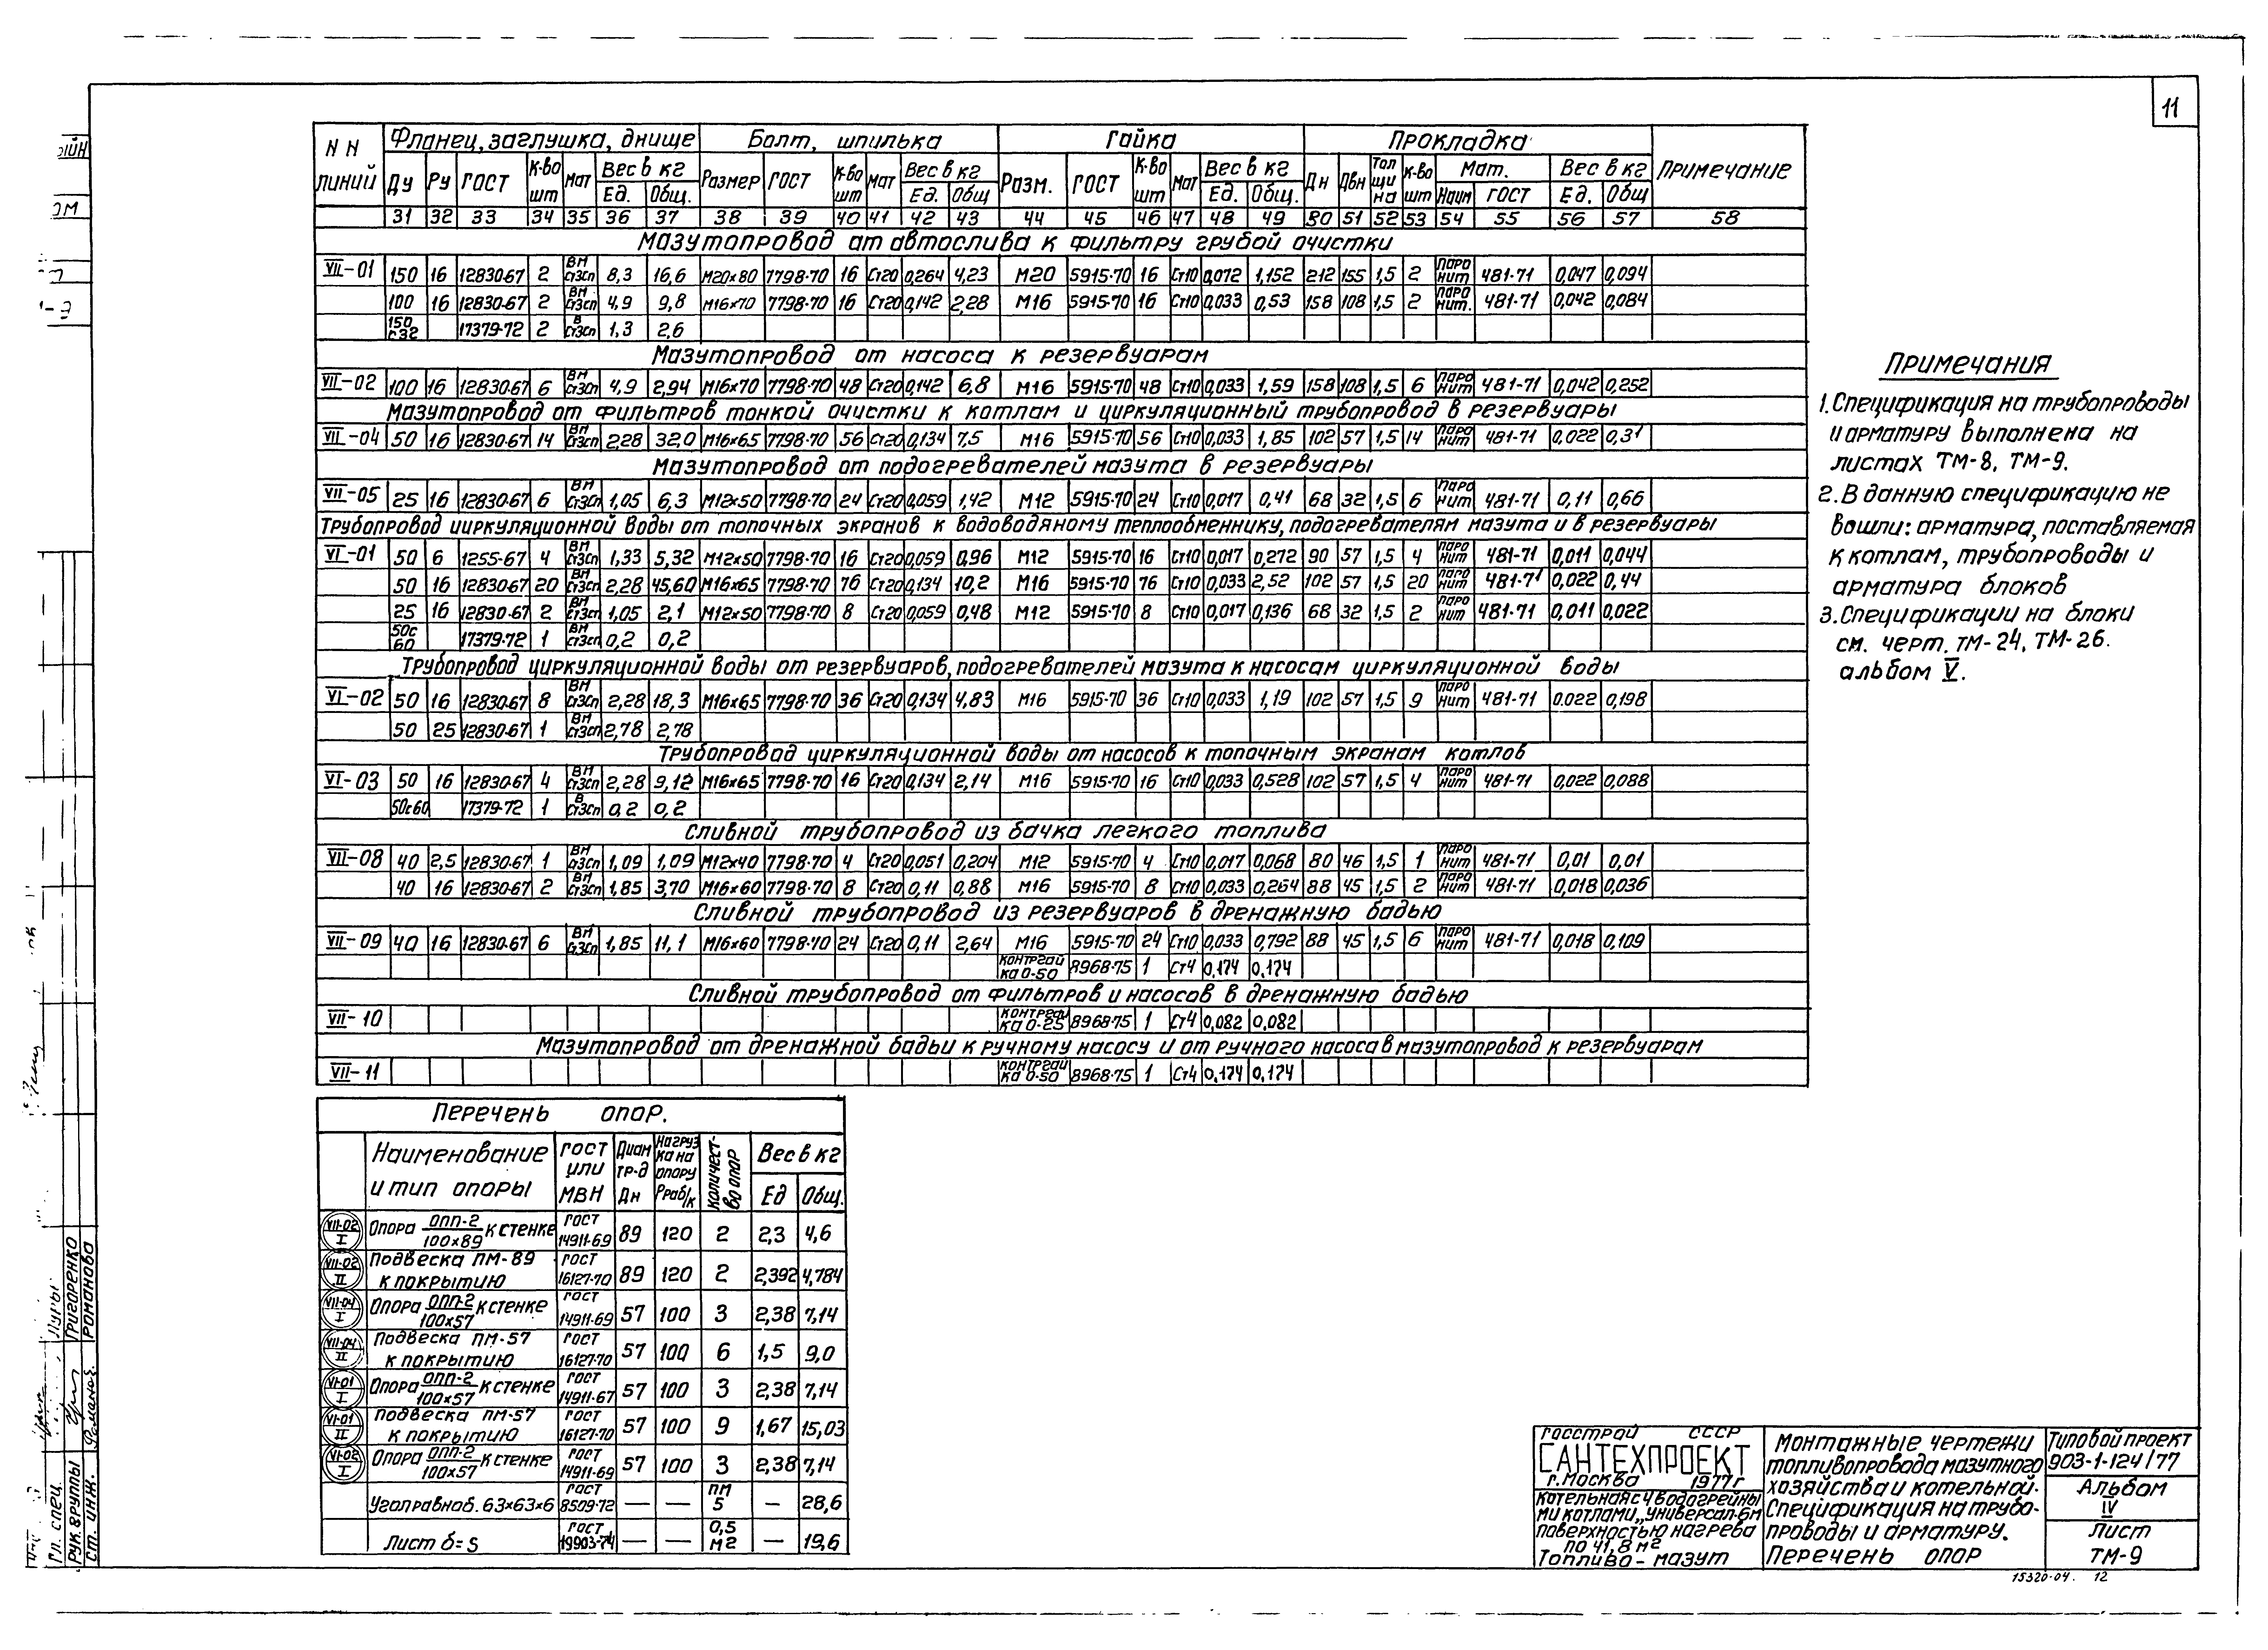 11
NN линий | Фланец, заглушка, днище | Болт, шпилька | Гайка | Прокладка | Примечание
Ду | Ру | ГОСТ | К-во шт | Мат | Вес в кг Ед. | Общ. | Размер | ГОСТ | К-во шт | Мат | Вес в кг Ед. | Общ | Разм. | ГОСТ | К-во шт | Мат | Вес в кг Ед. | Общ. | Дн | Двн | Толщина | К-во шт | Мат. Наим | ГОСТ | Вес в кг Ед. | Общ
31 32 33 34 35 36 37 38 39 40 41 42 43 44 45 46 47 48 49 50 51 52 53 54 55 56 57 58
Мазутопровод от автослива к фильтру грубой очистки
VII-01 150 16 12830-67 2 ВМ Ст3сп 8,3 16,6 М20х80 7798-70 16 Ст20 0,264 4,23 М20 5915-70 16 Ст10 0,072 1,152 212 155 1,5 2 паронит 481-71 0,047 0,094
100 16 12830-67 2 ВМ Ст3сп 4,9 9,8 М16х70 7798-70 16 Ст20 0,142 2,28 М16 5915-70 16 Ст10 0,033 0,53 158 108 1,5 2 паронит. 481-71 0,042 0,084
150 с32 17379-72 2 В Ст3сп 1,3 2,6
Мазутопровод от насоса к резервуарам
VII-02 100 16 12830-67 6 ВМ Ст3сп 4,9 2,94 М16х70 7798-70 48 Ст20 0,142 6,8 М16 5915-70 48 Ст10 0,033 1,59 158 108 1,5 6 паронит 481-71 0,042 0,252
Мазутопровод от фильтров тонкой очистки к котлам и циркуляционный трубопровод в резервуары
VII-04 50 16 12830-67 14 ВМ Ст3сп 2,28 32,0 М16х65 7798-70 56 Ст20 0,134 7,5 М16 5915-70 56 Ст10 0,033 1,85 102 57 1,5 14 паронит 481-71 0,022 0,31
Мазутопровод от подогревателей мазута в резервуары
VII-05 25 16 12830-67 6 ВМ Ст3сп 1,05 6,3 М12х50 7798-70 24 Ст20 0,059 1,42 М12 5915-70 24 Ст10 0,017 0,41 68 32 1,5 6 паронит 481-71 0,11 0,66
Трубопровод циркуляционной воды от топочных экранов к водоводяному теплообменнику, подогревателям мазута и в резервуары
VI-01 50 6 1255-67 4 ВМ Ст3сп 1,33 5,32 М12х50 7798-70 16 Ст20 0,059 0,96 М12 5915-70 16 Ст10 0,017 0,272 90 57 1,5 4 паронит 481-71 0,011 0,044
50 16 12830-67 20 ВМ Ст3сп 2,28 45,60 М16х65 7798-70 76 Ст20 0,134 10,2 М16 5915-70 76 Ст10 0,033 2,52 102 57 1,5 20 паронит 481-71 0,022 0,44
25 16 12830-67 2 ВМ Ст3сп 1,05 2,1 М12х50 7798-70 8 Ст20 0,059 0,48 М12 5915-70 8 Ст10 0,017 0,136 68 32 1,5 2 паронит 481-71 0,011 0,022
50с 60 17379-72 1 ВМ Ст3сп 0,2 0,2
Трубопровод циркуляционной воды от резервуаров, подогревателей мазута к насосам циркуляционной воды
VI-02 50 16 12830-67 8 ВМ Ст3сп 2,28 18,3 М16х65 7798-70 36 Ст20 0,134 4,83 М16 5915-70 36 Ст10 0,033 1,19 102 57 1,5 9 паронит 481-71 0.022 0,198
50 25 12830-67 1 ВМ Ст3сп 2,78 2,78
Трубопровод циркуляционной воды от насосов к топочным экранам котлов
VI-03 50 16 12830-67 4 ВМ Ст3сп 2,28 9,12 М16х65 7798-70 16 Ст20 0,134 2,14 М16 5915-70 16 Ст10 0,033 0,528 102 57 1,5 4 паронит 481-71 0,022 0,088
50с60 17379-72 1 В Ст3сп 0,2 0,2
Сливной трубопровод из бачка легкого топлива
VII-08 40 2,5 12830-67 1 ВМ Ст3сп 1,09 1,09 М12х40 7798-70 4 Ст20 0,051 0,204 М12 5915-70 4 Ст10 0,017 0,068 80 46 1,5 1 паронит 481-71 0,01 0,01
40 16 12830-67 2 ВМ Ст3сп 1,85 3,70 М16х60 7798-70 8 Ст20 0,11 0,88 М16 5915-70 8 Ст10 0,033 0,264 88 45 1,5 2 паронит 481-71 0,018 0,036
Сливной трубопровод из резервуаров в дренажную бадью
VII-09 40 16 12830-67 6 ВМ Ст3сп 1,85 11,1 М16х60 7798-70 24 Ст20 0,11 2,64 М16 5915-70 24 Ст10 0,033 0,792 88 45 1,5 6 паронит 481-71 0,018 0,109
контргайка 0-50 8968-75 1 Ст4 0,174 0,174
Сливной трубопровод от фильтров и насосов в дренажную бадью
VII-10 контргайка 0-25 8968-75 1 Ст4 0,082 0,082
Мазутопровод от дренажной бадьи к ручному насосу и от ручного насоса в мазутопровод к резервуарам
VII-11 контргайка 0-50 8968-75 1 Ст4 0,174 0,174
Примечания
1. Спецификация на трубопроводы
и арматуру выполнена на
листах ТМ-8, ТМ-9.
2. В данную спецификацию не
вошли: арматура, поставляемая
к котлам, трубопроводы и
арматура блоков
3. Спецификации на блоки
см. черт. ТМ-24, ТМ-26.
альбом V.
Перечень опор.
Наименование и тип опоры | ГОСТ или МВН | Диам тр-д Дн | Нагрузка на опору Рраб/к | Количество опор | Вес в кг Ед | Общ.
VII-02 I Опора ОПП-2 100х89 к стенке ГОСТ 14911-69 89 120 2 2,3 4,6
VII-02 II Подвеска ПМ-89 к покрытию ГОСТ 16127-70 89 120 2 2,392 4,784
VII-04 I Опора ОПП-2 100х57 к стенке ГОСТ 14911-69 57 100 3 2,38 7,14
VII-04 II Подвеска ПМ-57 к покрытию ГОСТ 16127-70 57 100 6 1,5 9,0
VI-01 I Опора ОПП-2 100х57 к стенке ГОСТ 14911-67 57 100 3 2,38 7,14
VI-01 II Подвеска ПМ-57 к покрытию ГОСТ 16127-70 57 100 9 1,67 15,03
VI-02 I Опора ОПП-2 100х57 к стенке ГОСТ 14911-69 57 100 3 2,38 7,14
Угол равноб. 63х63х6 ГОСТ 8509-72 — — пм 5 — 28,6
Лист б=5 ГОСТ 19903-74 — — 0,5 м2 — 19,6
Госстрой СССР
САНТЕХПРОЕКТ
г. Москва 1977г
Котельная с 4 водогрейны-
ми котлами „Универсал-6м
поверхностью нагрева
по 41,8 м2
Топливо - мазут
Монтажные чертежи
топливопровода мазутного
хозяйства и котельной.
Спецификация на трубо-
проводы и арматуру.
Перечень опор
Типовой проект
903-1-124/77
Альбом
IV
Лист
ТМ-9
15320-04. 12
Гл. спец.
Рук. группы Григоренко
Ст. инж. Романова